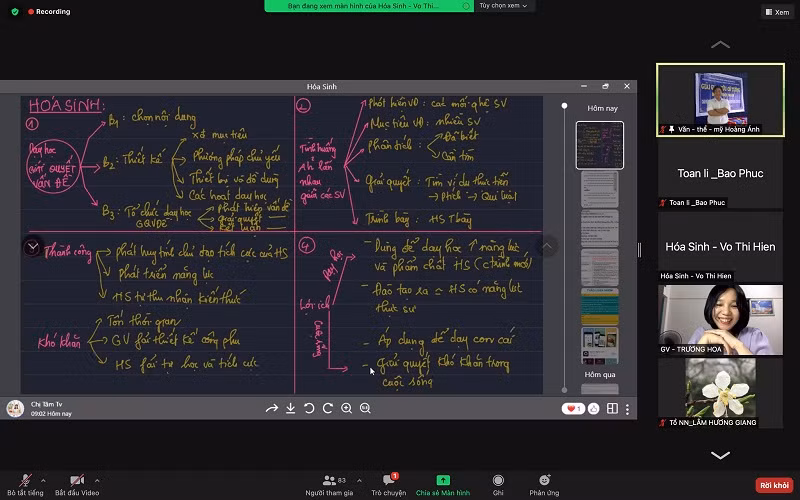 Recording
Bạn đang xem màn hình của Hóa Sinh - Vo Thi...
Tùy chọn xem
Xem
Hóa Sinh
HOÁ SINH:
①
Dạy học
GIẢI QUYẾT
VẤN ĐỀ
B1: chọn nội dung
B2: Thiết kế
xđ mục tiêu
Phương pháp chủ yếu
Thiết bị và đồ dùng
Các hoạt dạy học
B3: Tổ chức dạy học
GQVĐ
Phát hiện vấn đề
Giải quyết
Kết luận
Tình huống
Ah lẫn
nhau
giữa các SV
Phát hiện VĐ: các mối qhệ SV
Mục tiêu VĐ: nhiều SV
Phân tích:
Đã biết
Cần tìm
Giải quyết: Tìm ví dụ thực tiễn
→ ptích → Quy luật
Trình bày: HS Tbày
Thành công
phát huy tính chủ đạo tích cực của HS
Phát triển năng lực
HS tự thu nhận kiến thức
Khó khăn
Tốn thời gian
GV fải thiết kế công phu
HS fải tự học và tích cực
④
Lợi ích
Dạy học
- Dùng để dạy học ↑ năng lực
và phẩm chất HS (ctrình mới)
- Đào tạo ra HS có năng lực
thực sự
Cuộc sống
- Áp dụng để dạy con cái
- Giải quyết khó khăn trong
cuộc sống
Hôm nay
Hôm qua
Chị Tâm Tv
09:02 Hôm nay
1
Văn - thể - mỹ Hoàng Ánh
Toan li _Bao Phuc
Toan li _Bao Phuc
Hóa Sinh - Vo Thi Hien
Hóa Sinh - Vo Thi Hien
GV - TRƯƠNG HOA
Tổ NN_LÂM HƯƠNG GIANG
Bỏ tắt tiếng
Bắt đầu Video
Người tham gia
83
Trò chuyện
1
Chia sẻ Màn hình
Ghi
Phản ứng
Rời khỏi